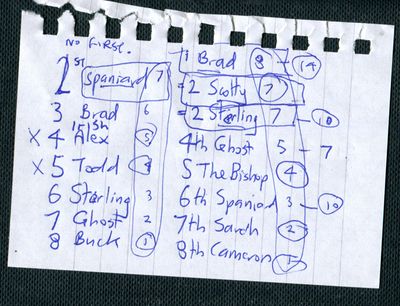 NO FIRST.
1st
2 Spaniard 7
3 Brad 6
ish
X 4 Alex 5
X 5 Todd 4
6 Starling 3
7 Ghost 2
8 Buck 1
1 Brad 8 - 14
=2 Scotty 7
=2 Starling 7 - 10
4th Ghost 5 - 7
5 The Bishop 4
6th Spaniard 3 - 10
7th Sarah 2
8th Cameron 1